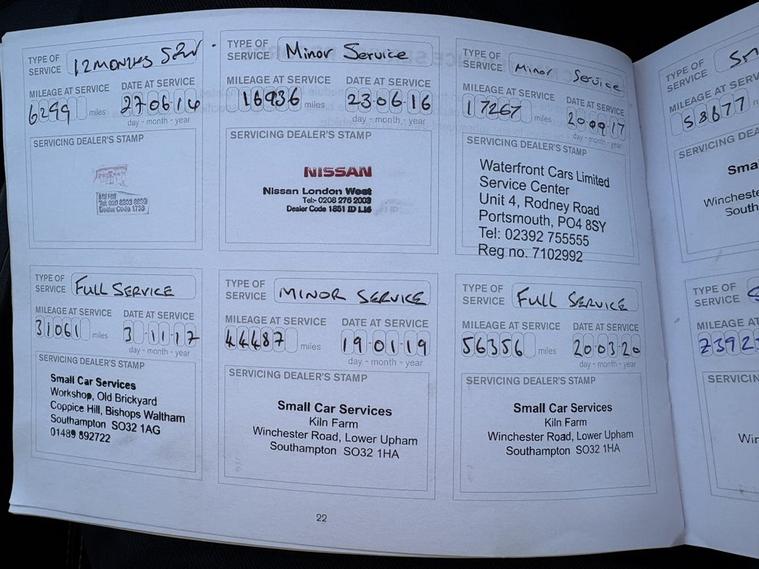 TYPE OF SERVICE 12 MONTHS
MILEAGE AT SERVICE DATE AT SERVICE
6299 miles 27 06 14
day - month - year
SERVICING DEALER'S STAMP
TYPE OF SERVICE Minor Service
MILEAGE AT SERVICE DATE AT SERVICE
16936 miles 23 06 16
day - month - year
SERVICING DEALER'S STAMP
NISSAN
Nissan London West
Tel:- 0208 276 2003
Dealer Code 1851 ID L16
TYPE OF SERVICE Minor Service
MILEAGE AT SERVICE DATE AT SERVICE
17267 miles 20 09 17
day - month - year
SERVICING DEALER'S STAMP
Waterfront Cars Limited
Service Center
Unit 4, Rodney Road
Portsmouth, PO4 8SY
Tel: 02392 755555
Reg no. 7102992
TYPE OF SERVICE FULL SERVICE
MILEAGE AT SERVICE DATE AT SERVICE
31061 miles 3 11 17
day - month - year
SERVICING DEALER'S STAMP
Small Car Services
Workshop, Old Brickyard
Coppice Hill, Bishops Waltham
Southampton SO32 1AG
01489 892722
TYPE OF SERVICE MINOR SERVICE
MILEAGE AT SERVICE DATE AT SERVICE
44487 miles 19 01 19
day - month - year
SERVICING DEALER'S STAMP
Small Car Services
Kiln Farm
Winchester Road, Lower Upham
Southampton SO32 1HA
TYPE OF SERVICE FULL SERVICE
MILEAGE AT SERVICE DATE AT SERVICE
56356 miles 20 03 20
day - month - year
SERVICING DEALER'S STAMP
Small Car Services
Kiln Farm
Winchester Road, Lower Upham
Southampton SO32 1HA
22
TYPE OF SERVICE
MILEAGE AT SERVICE
58677
SERVICING DEA
Sma
Winchester
South
TYPE OF SERVICE
MILEAGE AT
7392
SERVICIN
Win